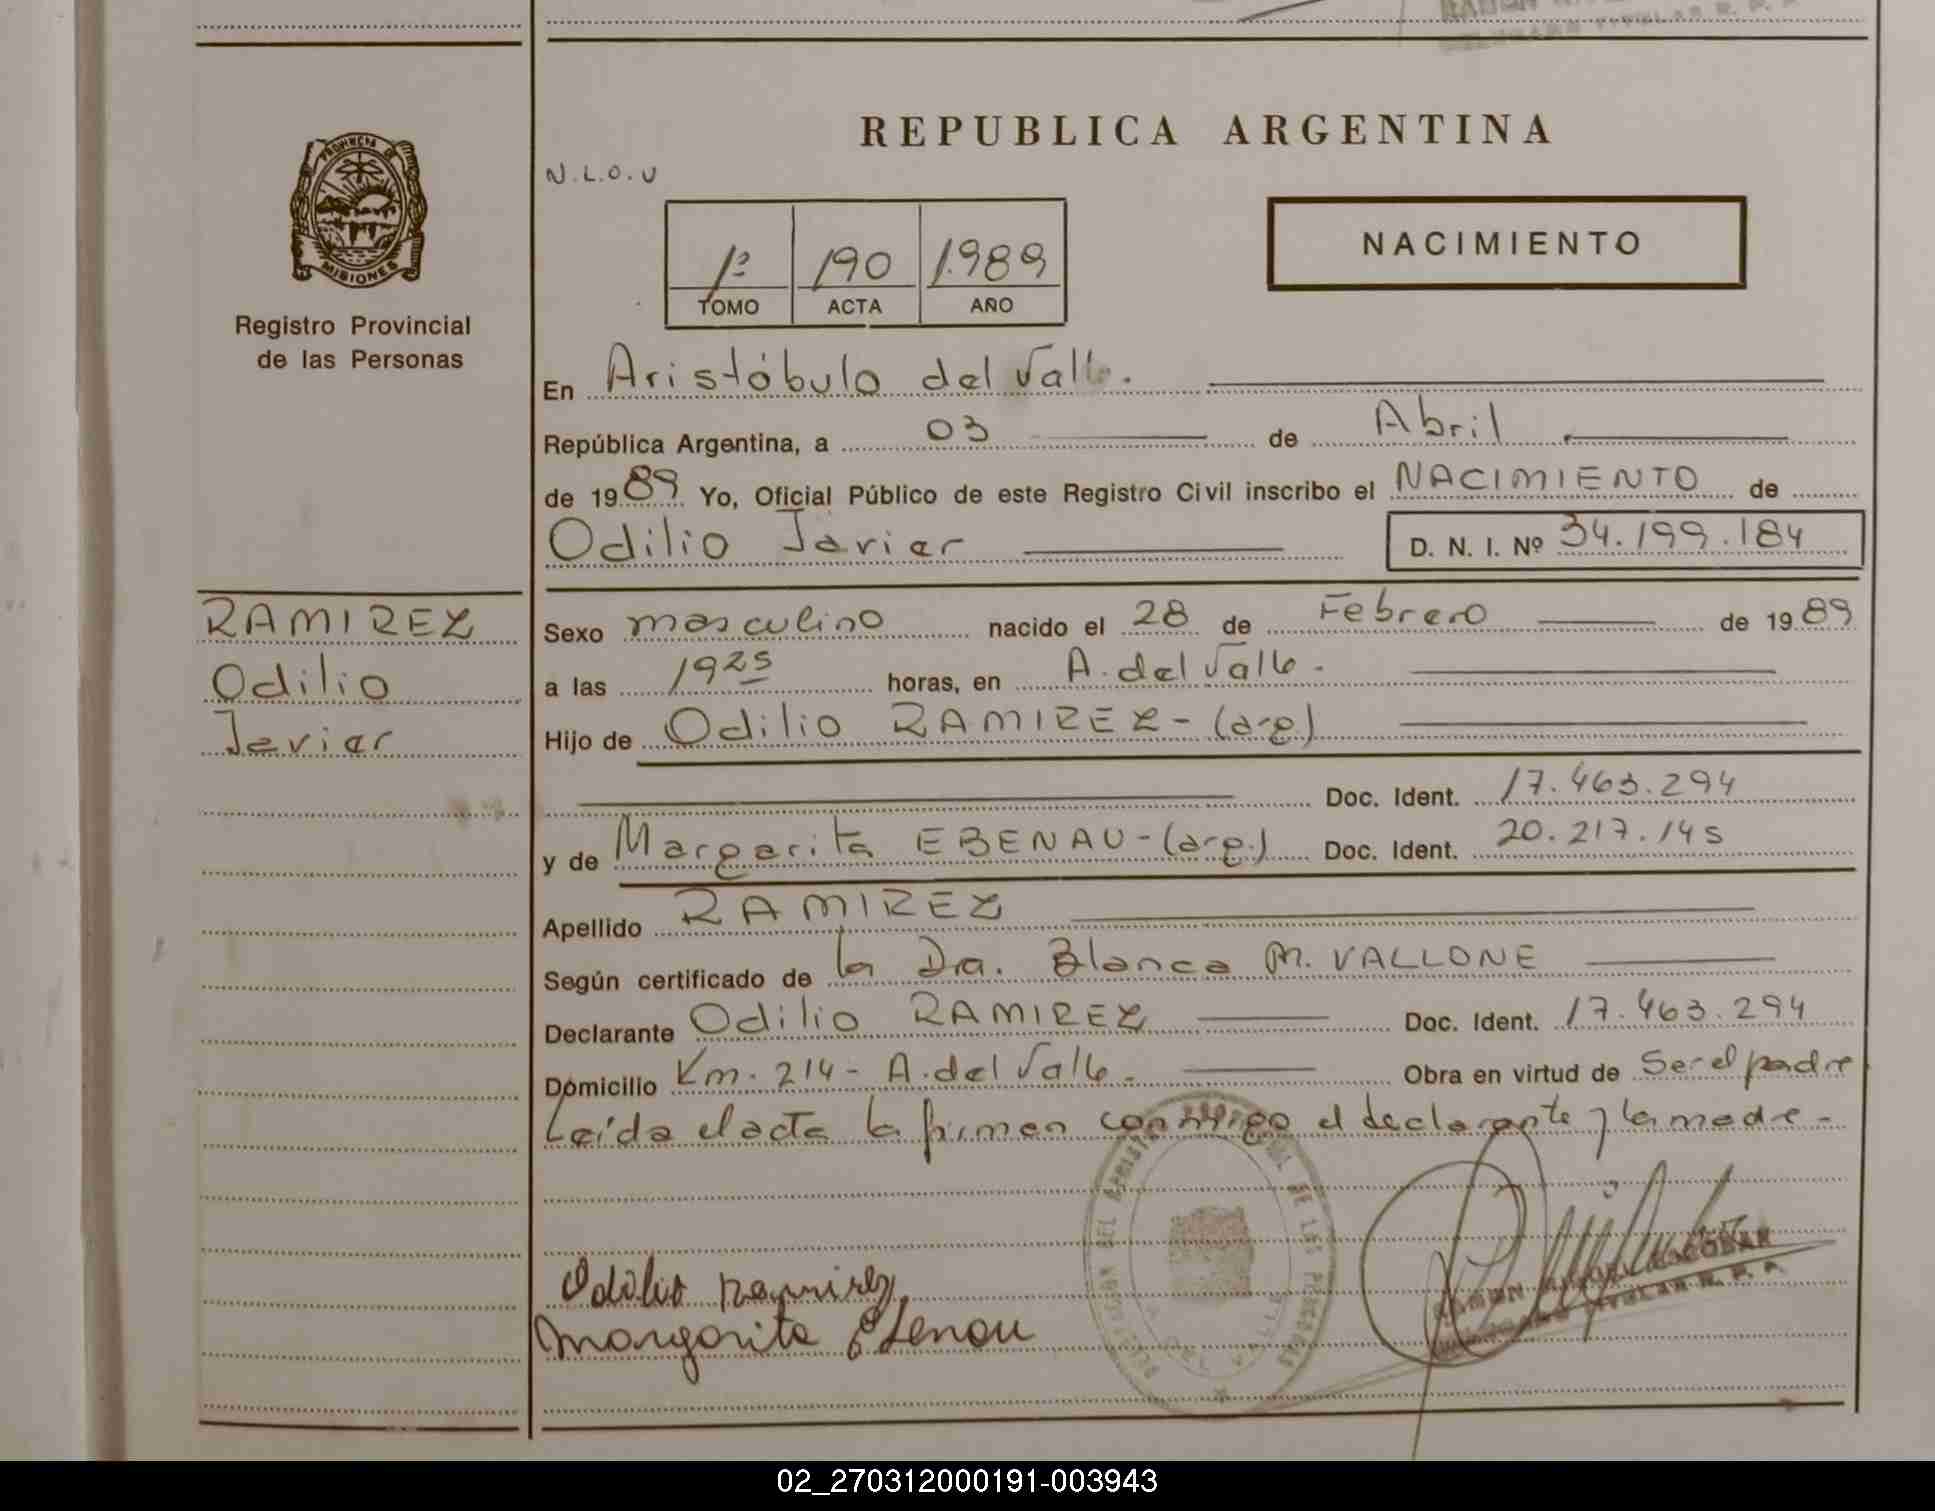 REPUBLICA ARGENTINA
N.L.O.U
NACIMIENTO
1º 190 1.989
TOMO ACTA AÑO
PROVINCIA DE
MISIONES
Registro Provincial
de las Personas
En Aristóbulo del Valle.
República Argentina, a 03 de Abril
de 1989 Yo, Oficial Público de este Registro Civil inscribo el NACIMIENTO de
Odilio Javier D. N. I. Nº 34.199.184
RAMIREZ
Odilio
Javier
Sexo masculino nacido el 28 de Febrero de 1989
a las 1925 horas, en A. del Valle.
Hijo de Odilio RAMIREZ - (arg.)
Doc. Ident. 17.463.294
y de Margarita EBENAU - (arg.) Doc. Ident. 20.217.145
Apellido RAMIREZ
Según certificado de la Dra. Blanca M. VALLONE
Declarante Odilio RAMIREZ Doc. Ident. 17.463.294
Domicilio Km. 214 - A. del Valle. Obra en virtud de Ser el padre
Leída el acta la firman conmigo el declarante y la madre -
Odilio Ramirez
Margarita Ebenau
RAMON ESCOBAR
TITULAR R. P. P.
02_270312000191-003943